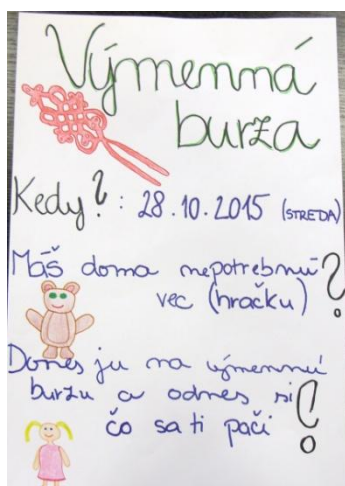 Výmenná
burza
Kedy?: 28.10.2015 (STREDA)
Máš doma nepotrebnú
vec (hračku)?
Dones ju na výmennú
burzu a odnes si
čo sa ti pači!